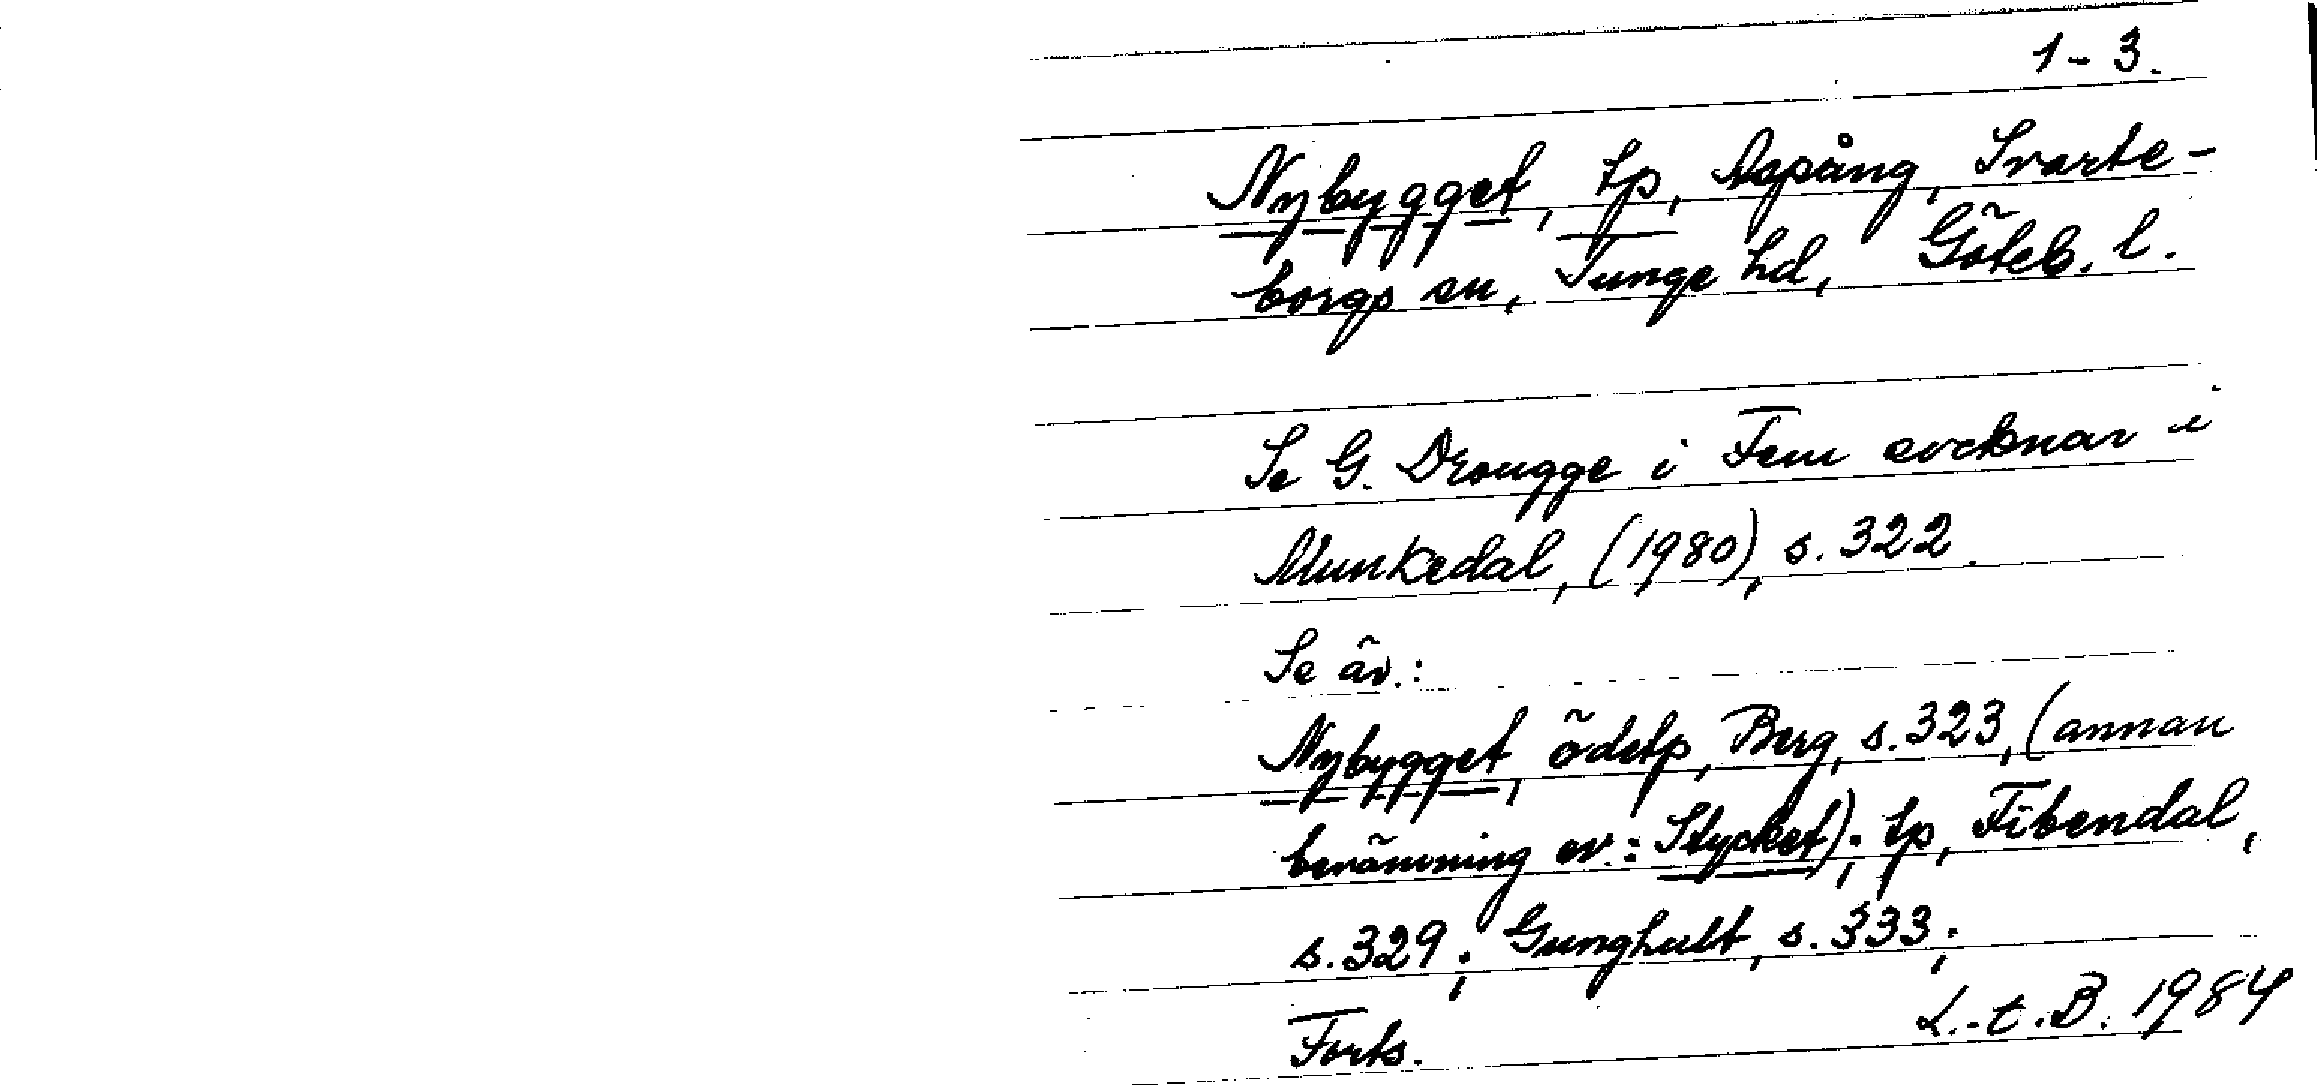 1-3.
Nybygget, tp, Aspång, Svarte-
borgs sn, Tunge hd, Göteb. l.
Se G. Drougge i Fem socknar i
Munkedal, (1980), s. 322.
Se äv.:
Nybygget, ödetp, Berg, s. 323, (annan
benämning av: Stycket); tp, Fibendal,
s. 329; Gunghult, s. 333;
Forts. L.-t.B. 1984